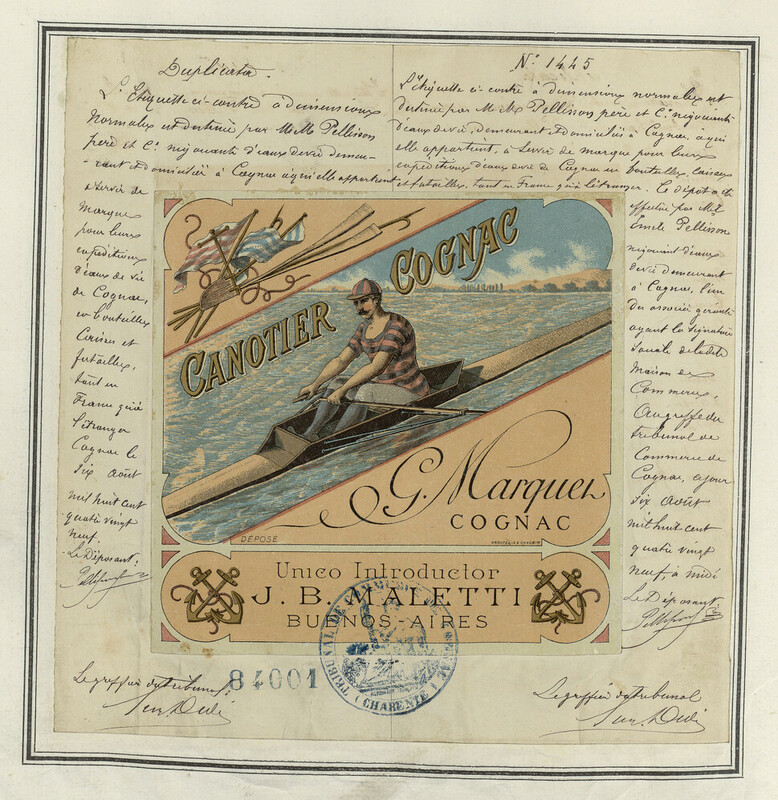 Duplicata.
L'Etiquette ci-contre à dimensions
normales est destinée, par MM. Pellisson
père et Cie. négociants d'eaux de vie demeu-
rant et domiciliés à Cognac, à qui elle appartient,
à servir de
marque
pour leurs
expéditions
d'eaux de vie
de Cognac,
en bouteilles
Caisses et
futailles,
tant en
France qu'à
l'étranger
Cognac le
six Août
mil huit cent
quatre vingt
neuf.
Le Déposant:
Nº 1445
L'étiquette ci-contre à dimensions normales est
destinée par MM. Pellisson père et Cie. négociants
d'eaux de vie, demeurant et domiciliés à Cognac, à qui
elle appartient, à servir de marque pour leurs
expéditions d'eaux de vie de Cognac en bouteilles, caisses
et futailles, tant en France qu'à l'étranger. Ce dépôt a été
effectué par Mr.
Emile Pellisson
négociant d'eaux
de vie demeurant
à Cognac, l'un
des associés gérants
ayant la signature
sociale de la dite
Maison de
Commerce,
Au greffe du
tribunal de
Commerce de
Cognac, ce jour
six Août
mil huit cent
quatre vingt
neuf, à midi
Le Déposant,
CANOTIER COGNAC
G. Marquez
COGNAC
DÉPOSÉ
Unico Introductor
J. B. MALETTI
BUENOS-AIRES
84001
TRIBUNAL DE COMMERCE DE COGNAC
(CHARENTE)
Le greffier du tribunal:
Le greffier du tribunal